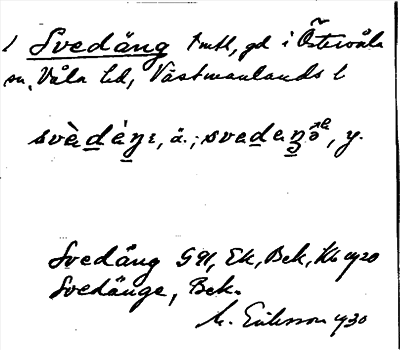 1 Svedäng tmt, gd i Östervåla
sn, Våla hd, Västmanlands l
svèdäŋı, ä.; svedaŋə, y.
Svedäng G 91, Ek, Bek, Kb 1920
Svedänge, Bek.
M. Eriksson 1930